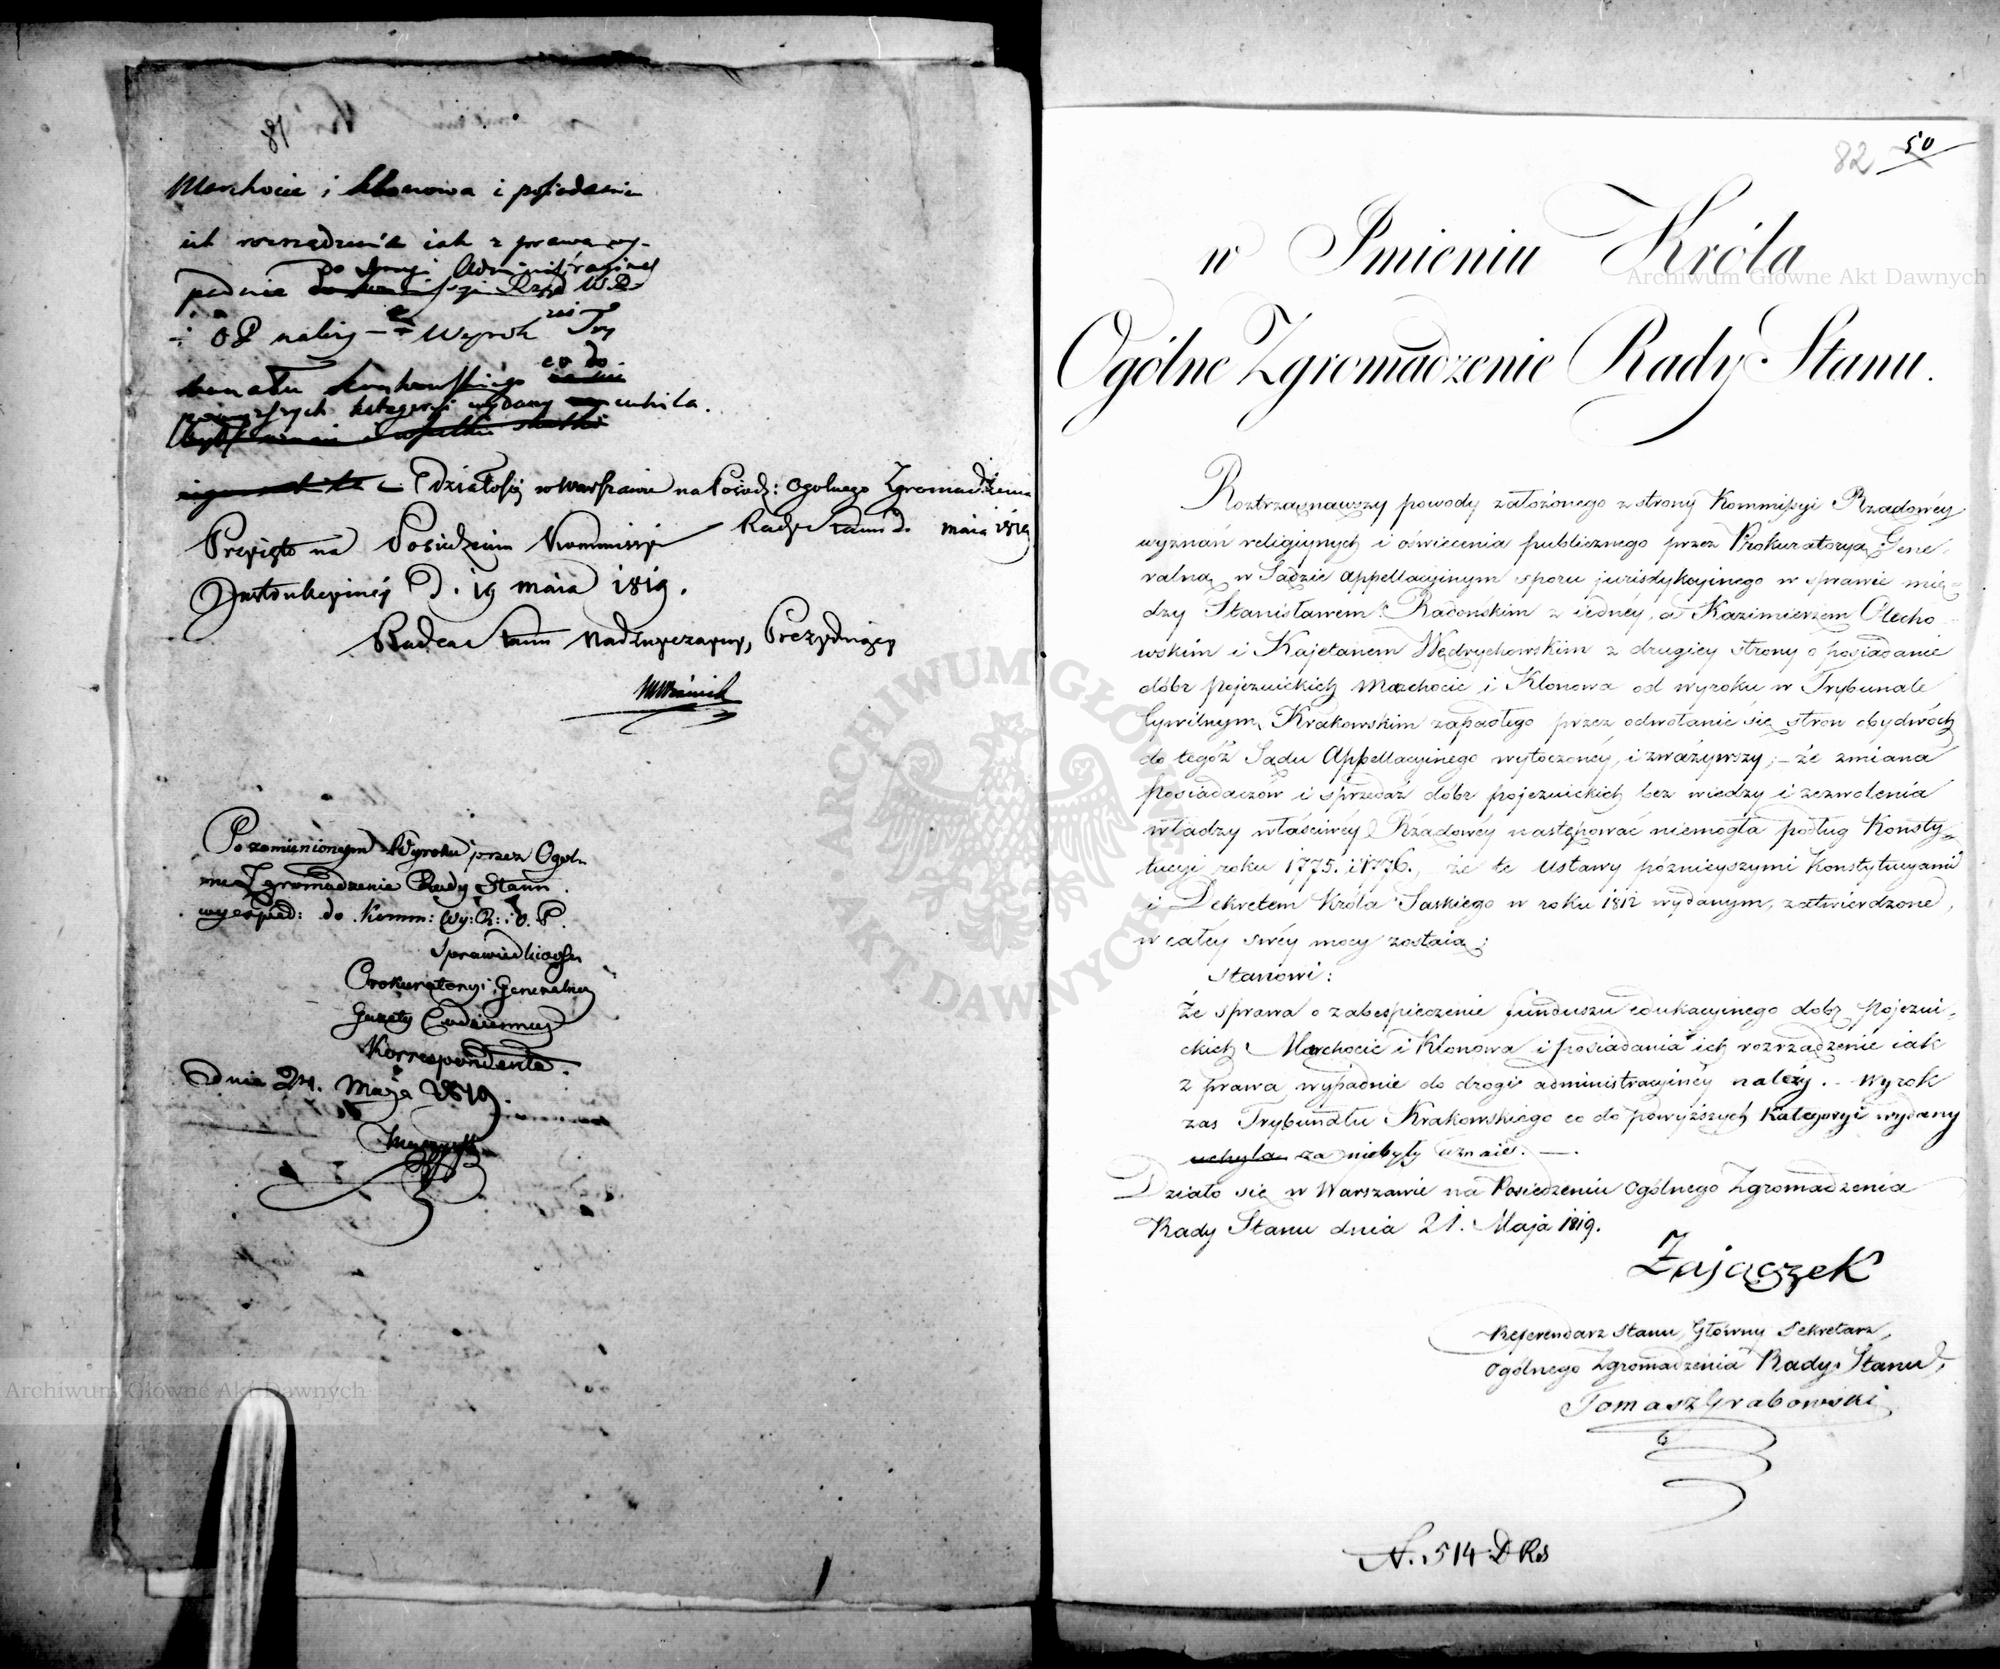 81
Marchocic i Klonowa i posiadania
ich rozrządzenia iak z prawa wy-
padnie do drogi Administracyinej
i OP należy – Wyrok zaś Try
bunału Krakowskiego co do
powyższych kategoryi wydany uchila.
Działo się w Warszawie na Posiedz: Ogolnego Zgromadzenia
Rady Stanu d. maia 1819
Przyięto na Posiedzeniu Kommissyi
Instrukcyinej D. 19 maia 1819.
Radca Stanu Nadzwyczayny, Prezyduiący
Po zamienionym Wyroku przez Ogol-
ne Zgromadzenie Rady Stanu
wyexped: do Komm: Wy: R: i O. P.
Sprawiedliwości
Prokuratoryi Generalney
Gazety Codzienney
Korrespondenta.
Dnia 24. Maja 1819.
82 50
w Imieniu Króla
Ogólne Zgromadzenie Rady Stanu.
Roztrząsnąwszy powody założonego z strony Kommissyi Rządowéy
wyznań religiynych i oświecenia publicznego przez Prokuratoryą Gene-
ralną w Sądzie Appellacyinym sporu jurisdykcyinego w sprawie mię-
dzy Stanisławem Radońskim z iednéy, a Kazimierzem Olecho-
wskim i Kajetanem Wędrychowskim z drugiey strony o posiadanie
dóbr pojezuickich Marchocic i Klonowa od wyroku w Trybunale
Cywilnym Krakowskim zapadłego przez odwołanie się stron obydwóch
do tegoż Sądu Appellacyinego wytoczonéy, i zważywszy; – że zmiana
posiadaczów i sprzedaż dóbr pojezuickich bez wiedzy i zezwolenia
władzy właściwéy Rządowéy następować niemogła podług Konsty-
tucyi roku 1775. i 1776., że te Ustawy późnieyszymi Konstytucyami
i Dekretem Króla Saskiego w roku 1812 wydanym, zatwierdzone,
w całey swéy mocy zostaią;
Stanowi:
Że sprawa o zabespieczenie funduszu edukacyinego dobr pojezui-
ckich Marchocic i Klonowa i posiadania ich rozrządzenie iak
z prawa wypadnie do drogi administracyinéy należy. – Wyrok
zas Trybunału Krakowskiego co do powyższych Kategoryi wydany
uchyla za niebyły uznaie. –.
Działo się w Warszawie na Posiedzeniu Ogólnego Zgromadzenia
Rady Stanu dnia 21. Maja 1819.
Zajączek
Referendarz Stanu, Główny Sekretarz,
Ogólnego Zgromadzenia Rady Stanu,
Tomasz Grabowski
N. 514 D Rs
Archiwum Główne Akt Dawnych
Archiwum Główne Akt Dawnych
ARCHIWUM GŁÓWNE AKT DAWNYCH